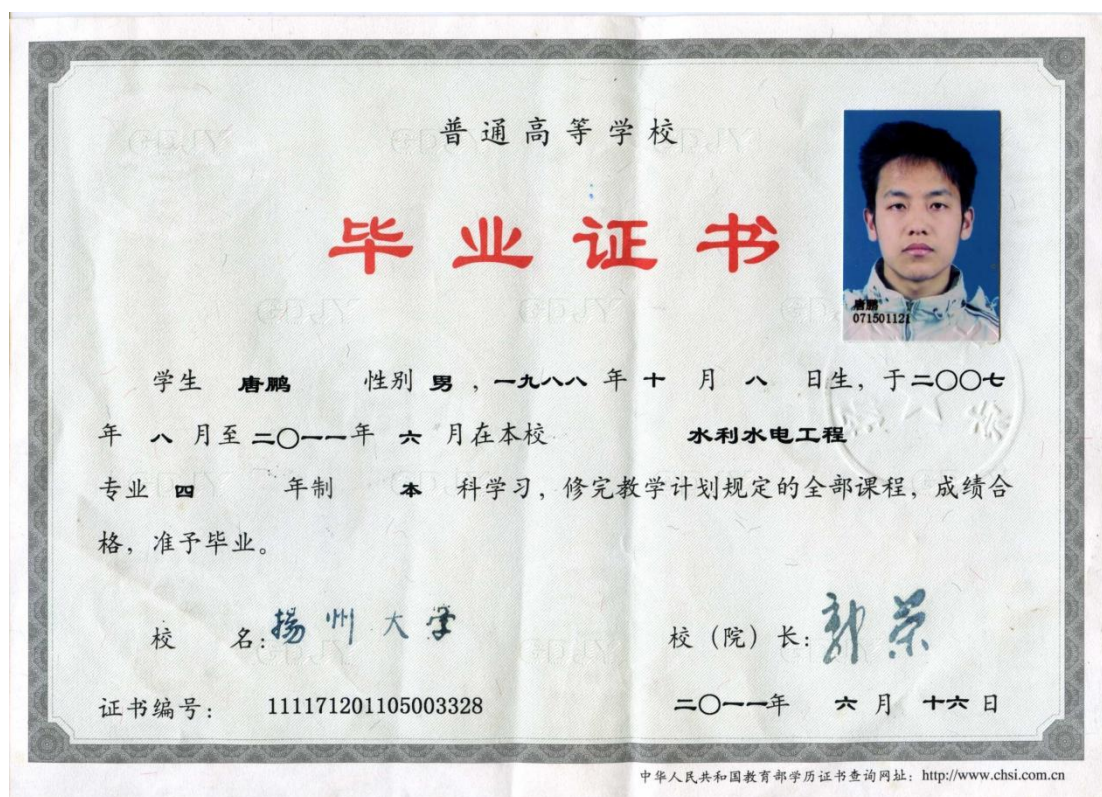 普通高等学校
毕业证书
唐鹏
071501121
学生 唐鹏 性别 男 ，一九八八 年 十 月 八 日生，于二〇〇七
年 八 月至 二〇一一年 六 月在本校 水利水电工程
专业 四 年制 本 科学习，修完教学计划规定的全部课程，成绩合
格，准予毕业。
校 名：揚州大学 校（院）长：郭荣
证书编号： 111171201105003328 二〇一一年 六 月 十六 日
中华人民共和国教育部学历证书查询网址：http://www.chsi.com.cn